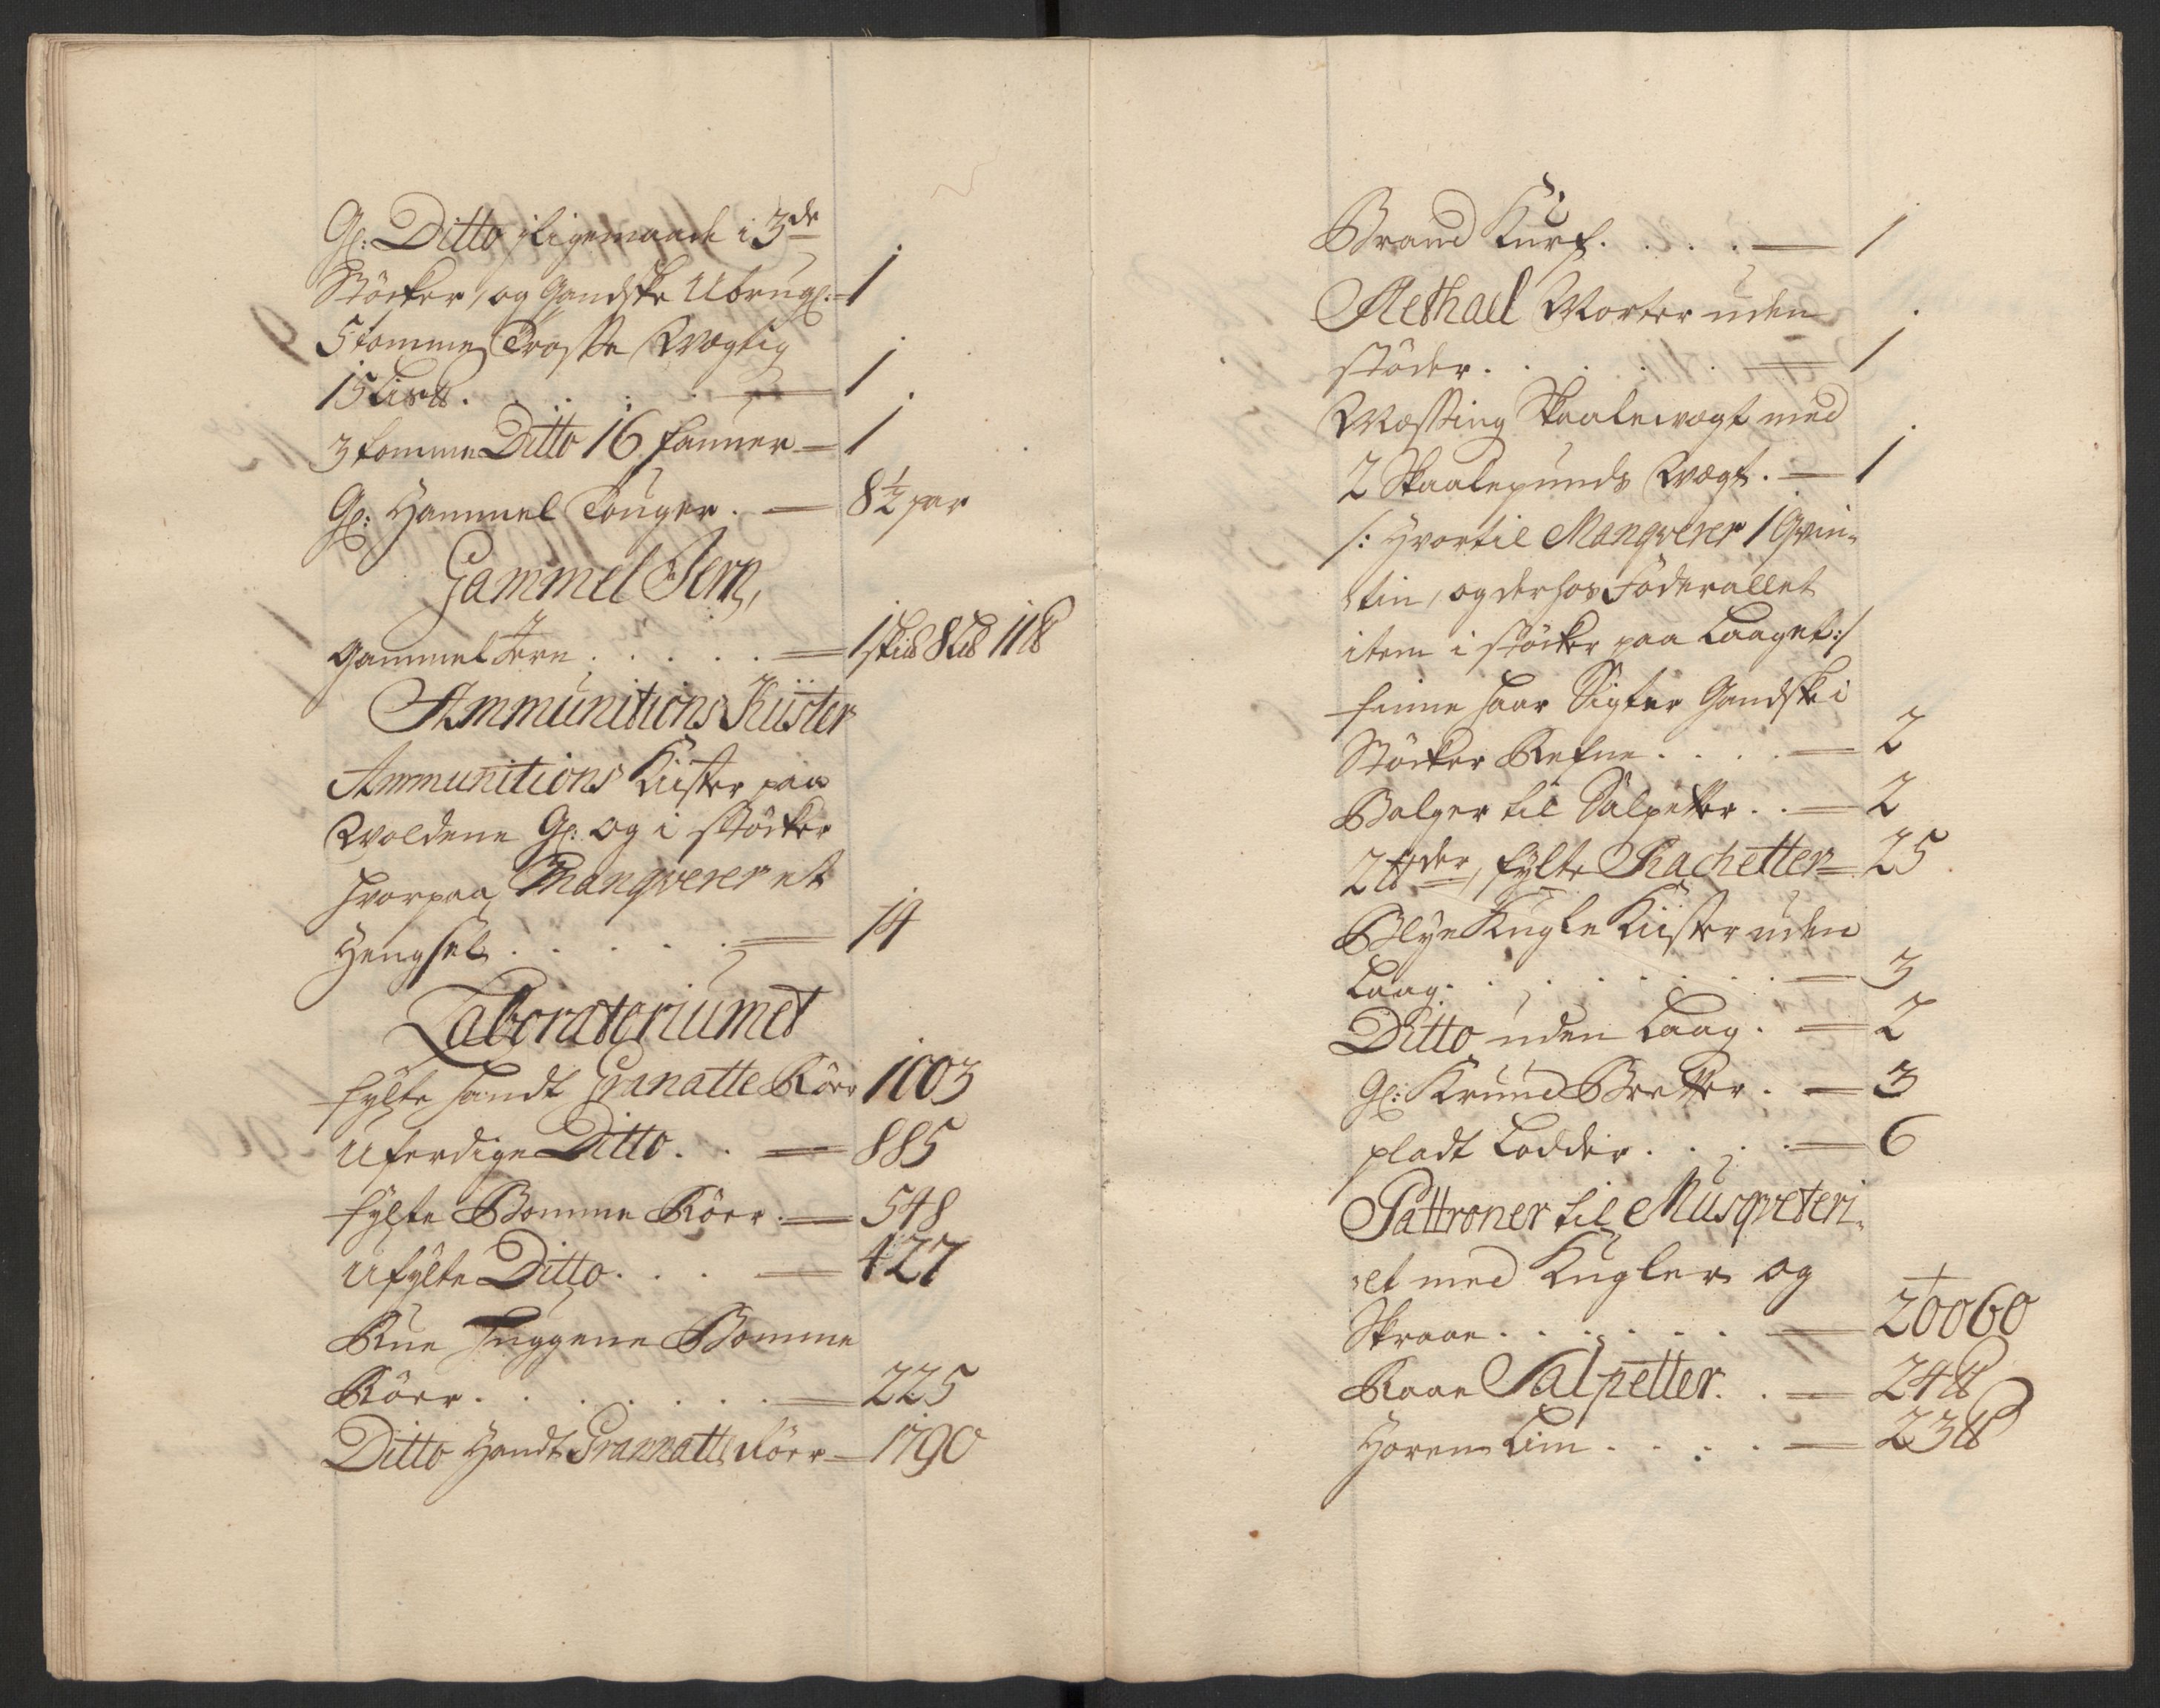 Gl: Ditto iligemaade i 3de
Stöcker, og Gandske Ubrugl: 1
5 tomme Trosse Wægtig
15 Lis℔. . . . . . 1
3 tomme Ditto 16 fauner 1
Gl: Hammel Touger. 8½ par
Gammel Jern,
Gammel Jern . . . . . 1 ski℔ 8 L℔ 11 ℔
Ammunitions Kiister
Ammunitions Kiister paa
Woldene Gl: og i stöcker
hvorpaa Manqverer et
Hengsel . . . . . 14
Laboratoriumet
fylte Handt Granatte Rörr 1003
Uferdige Ditto. . 885
fylte Bomme Rörr. 548
Ufylte Ditto. . . 427
Rue huggene Bomme
Rörr. . . . . . . 225
Ditto Handt Grannatte Rörr 1790
Brand Kurf. . . . . 1
Methael Morter uden
stöder. . . . . 1
Messing Skaalevægt med
2 Skaalepunds Wægt. 1
/: Hvortil Manqverer 1 Qvin-
tin, og derhos Foderallet
item i stöcker paa Laaget :/
fiine haar Sigter Gandske i
Stöcker Refne. . . . 2
Balger til Salpetter. . 2
2 ℔der, fylte Rachetter 25
Blye Kugle Kiister uden
Laag. . . . . . . . 3
Ditto uden Laag. 2
Gl: Krund Bretter. 3
pladt Lodder. . . . 6
Pattroner til Musqveteri-
et med Kugler og
Skraae. . . . . . . 20060
Raae Salpetter. . 24 ℔
Horen Lim . . . . 23 ℔